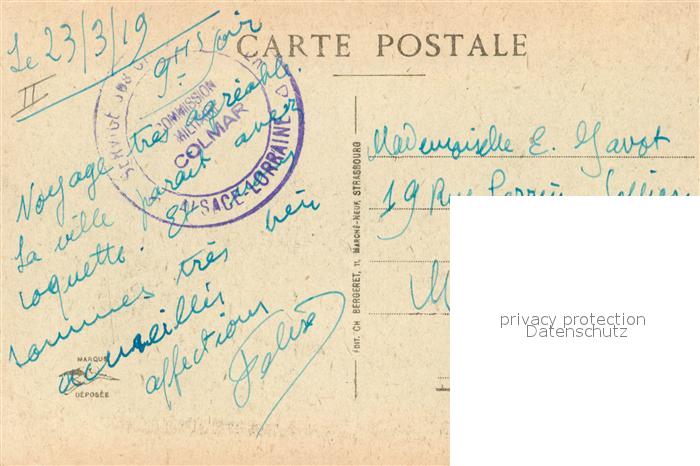 CARTE POSTALE
Le 23/3/19
II
9H soir
COMMISSION
MILITAIRE
COLMAR
ALSACE-LORRAINE
Voyage très agréable.
La ville paraît avec
coquette. Et nous
sommes très bien
accueillis
affections
Félix
Mademoiselle E. Gavot
19 Rue Perrin Sollier
M
EDIT. CH BERGERET, 11, MARCHÉ-NEUF, STRASBOURG
MARQUE
DÉPOSÉE
privacy protection
Datenschutz